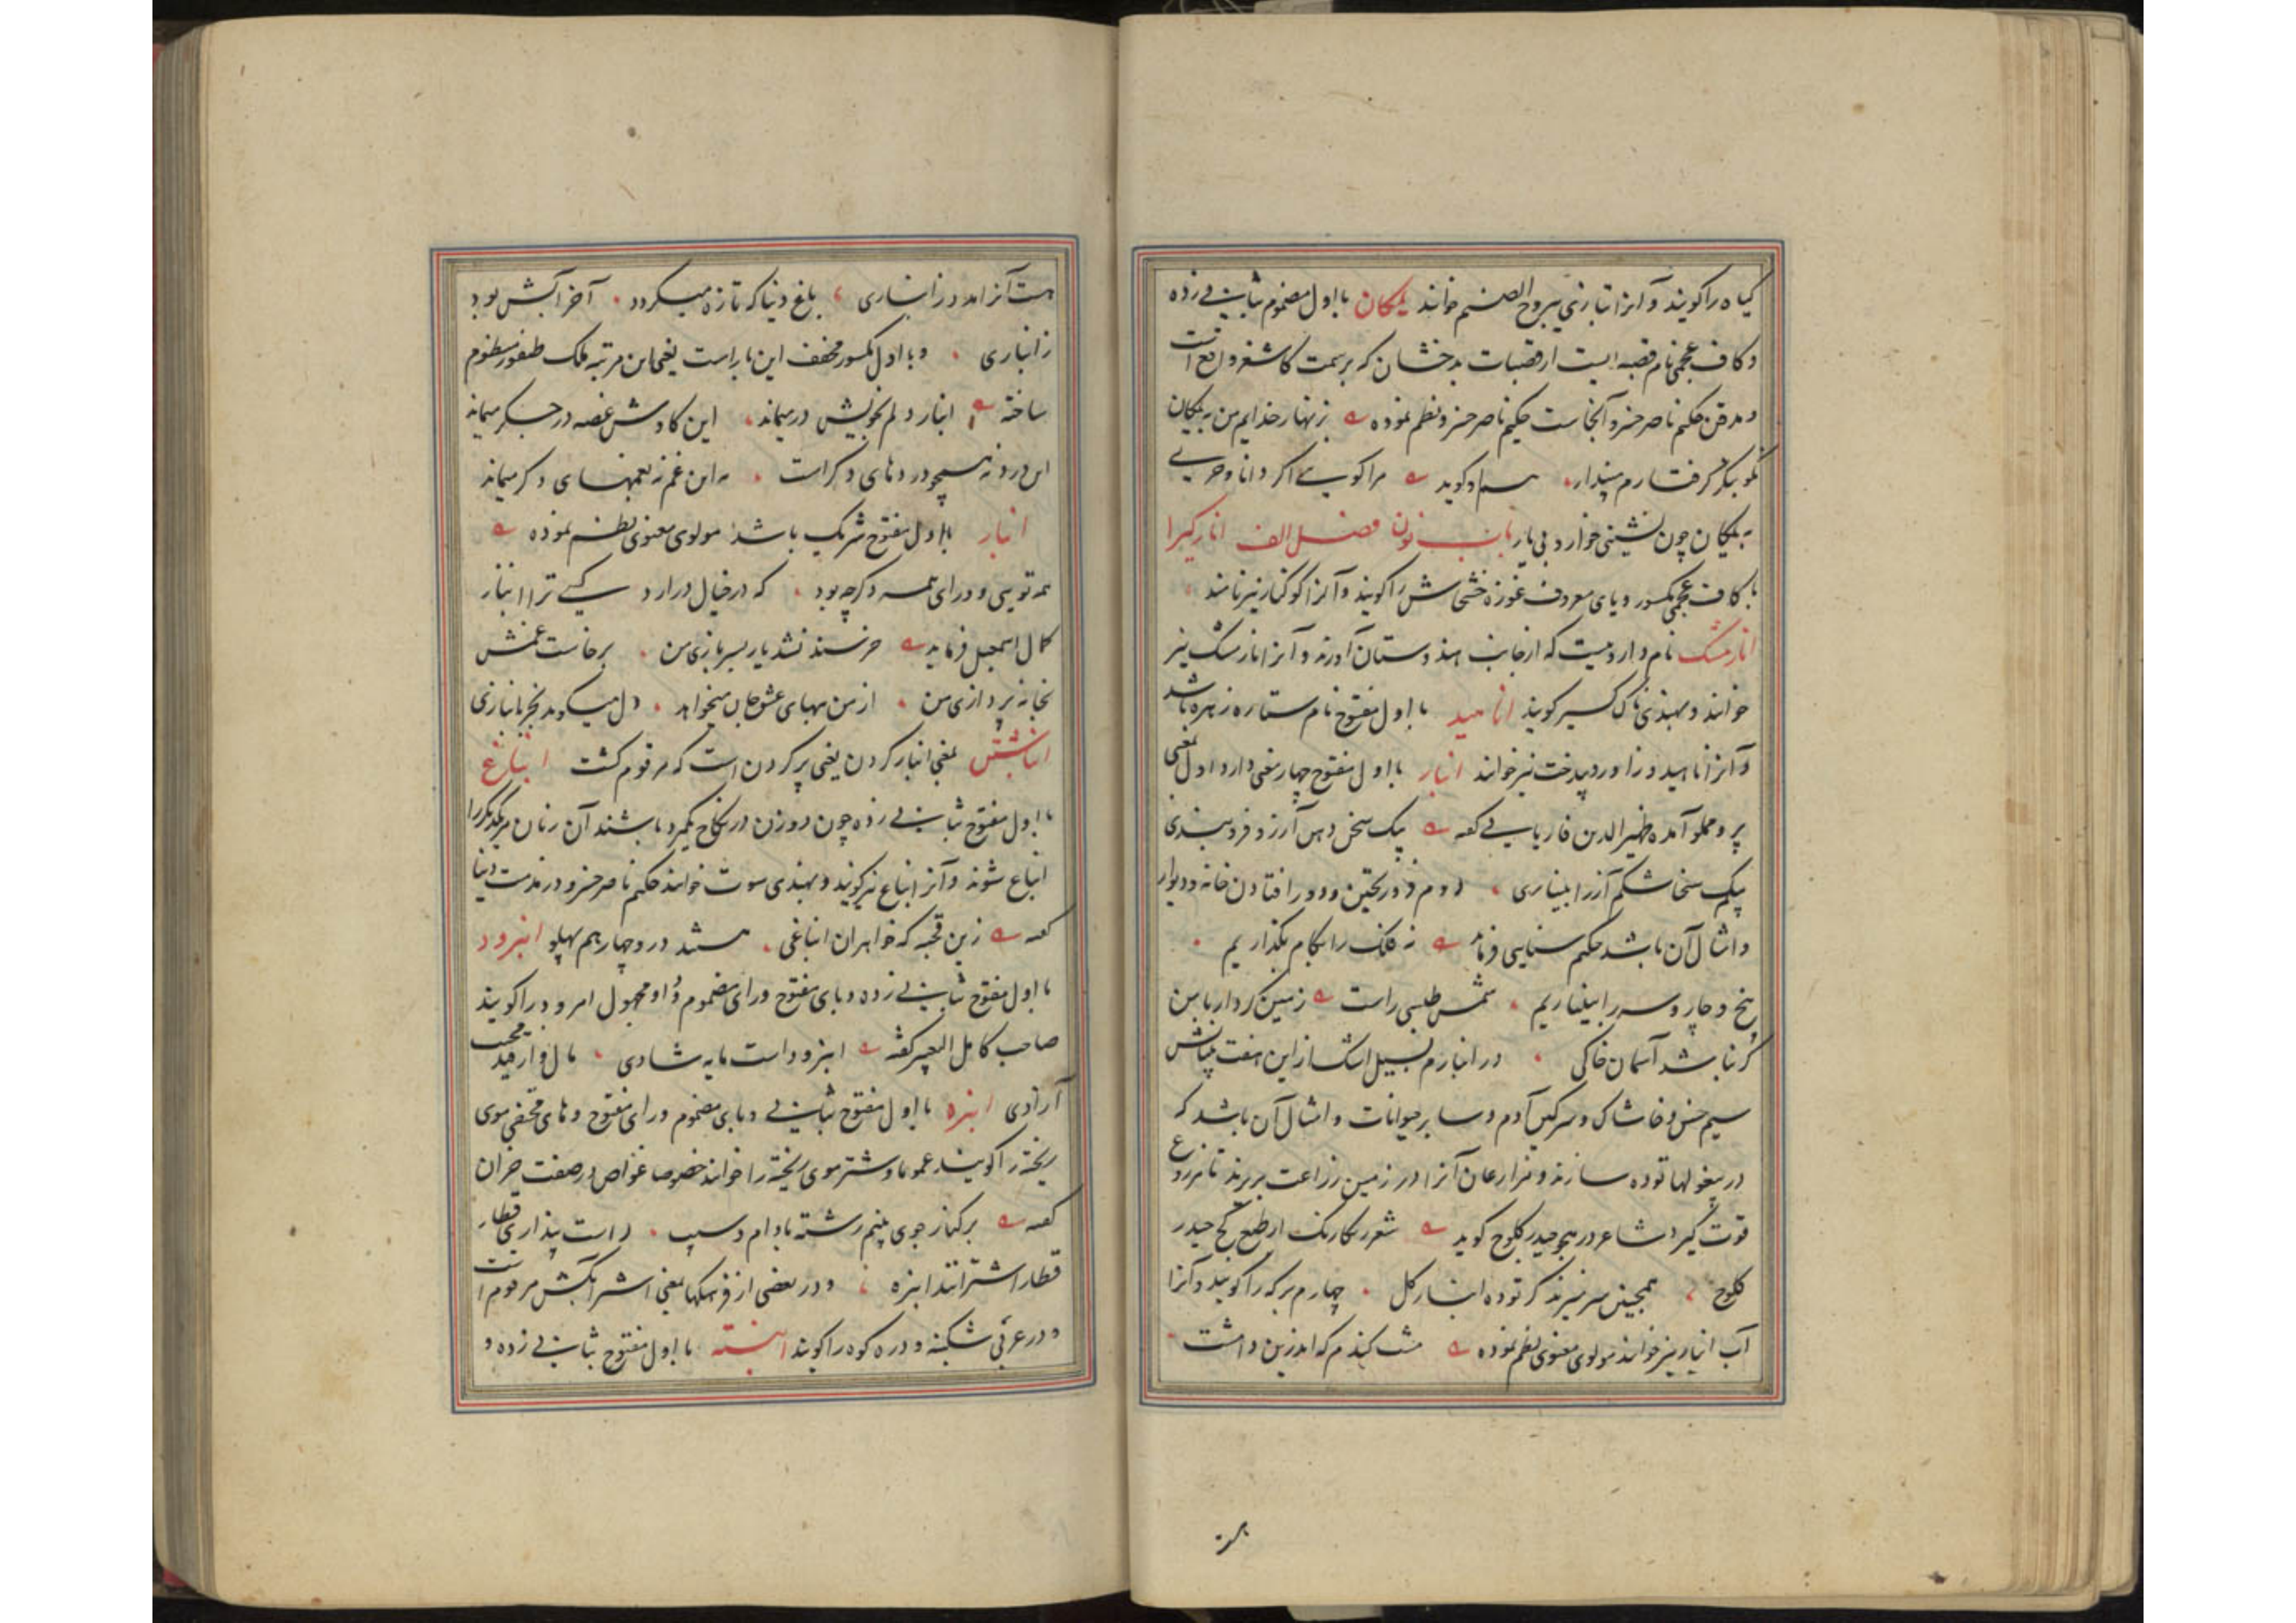 گیاه را گویند و آنرا بتازی یبروح الصنم خوانند یمکان با اول مضموم بثانی زده
و کاف عجمی نام قصبه ایست از قصبات بدخشان که بر سمت کاشغر واقع است
و مدفن حکیم ناصر خسرو آنجاست حکیم ناصر خسرو نظم نموده زنهار خدایم من به یمکان
نکو بنگر گرفتارم مپندار هم او گوید مرا گویی اگر دانا و حری
به یمکان چون نشینی خوار و بی یار باب نون فصل الف انارگیرا
با کاف عجمی مکسور و یای معروف غوزه خشخاش را گویند و آنرا کوکنار نیز نامند
انارمشک نام دارویست که از جانب هندوستان آورند و آنرا نارمشک نیز
خوانند و بهندی ناک کسیر گویند اناهید با اول مفتوح نام ستاره زهره باشد
و آنرا ناهید و زاور و بیدخت نیز خوانند انبار با اول مفتوح چهار معنی دارد اول بمعنی
پر و مملو آمده ظهیرالدین فاریابی گفته بیک سخن دهن آرزو فرو بندی
بیک سخا شکم آز را بینباری دوم فرو ریختن و در افتادن خانه و دیوار
و امثال آن باشد حکیم سنایی فرماید نه فلک را بکام بگذاریم
پنج و چار و سه را بینباریم شمس طبسی راست زمین کردار با من
گر نباشد آسمان خاکی در انبارم بسیل اشک از این هفت بنیانش
سیم خس و خاشاک و سرگین آدم و سایر حیوانات و امثال آن باشد که
در پیغولها توده سازند و مزارعان آنرا در زمین زراعت بریزند تا مزروع
قوت گیرد شاعر در هجو حیدر کلوج گوید شعر رنگارنگ از طبع کج حیدر
کلوج همچنین سر میزند کز توده انبار گل چهارم برکه را گویند و آنرا
آب انبار نیز خوانند مولوی معنوی نظم نموده مشت گندم که اندرین دامست
هست آنرا مدد ز انباری باغ دنیا که تازه میگردد آخر آبش بود
ز انباری و با اول مکسور مخفف این بار است یعنی این مرتبه ملک طیفور منظوم
ساخته انبار دلم بخویش درمیماند این کاوش غصه در جگر میماند
این درد نه همچو دردهای دگر است نه این غم نه بغمهای دگر میماند
انباز با اول مفتوح شریک باشد مولوی معنوی نظم نموده
همه تویی و ورای همه دگر چه بود که در خیال درآرد کسی ترا انباز
کمال اسمعیل فرماید خرسند نشد یار بسربازی من برخاست غمش
بخانه پردازی من از من ببهای عشق جان میخواهد دل میگوید بخر بانبازی
انباشتن بمعنی انبار کردن یعنی پر کردن است که مرقوم گشت انباغ
با اول مفتوح بثانی زده چون دو زن در نکاح یکمرد باشند آن زنان مر یکدیگر را
انباغ شوند و آنرا انباغ نیز گویند و بهندی سوت خوانند حکیم ناصر خسرو در مذمت دنیا
گفته زین قحبه که خواهران انباغی هستند در و چهار هم پهلو انبرود
با اول مفتوح بثانی زده و بای مفتوح و رای مضموم و واو مجهول امرود را گویند
صاحب کامل التعبیر گفته انبرود است مایه شادی مال وافر
آزادی انبره با اول مفتوح بثانی و بای مضموم و رای مفتوح و های مختفی موی
ریخته را گویند عموما و شتر موی ریخته را خوانند خصوصا غواص در صفت خزان
گفته بر کنار جوی بینم رشته بادام و سیب راست پنداری قطار
قطار اشترانند انبره و در بعضی از فرهنگها بمعنی اشتر آبکش مرقوم است
و در عربی شکبنه و دره کوه را گویند انبسته با اول مفتوح بثانی زده و